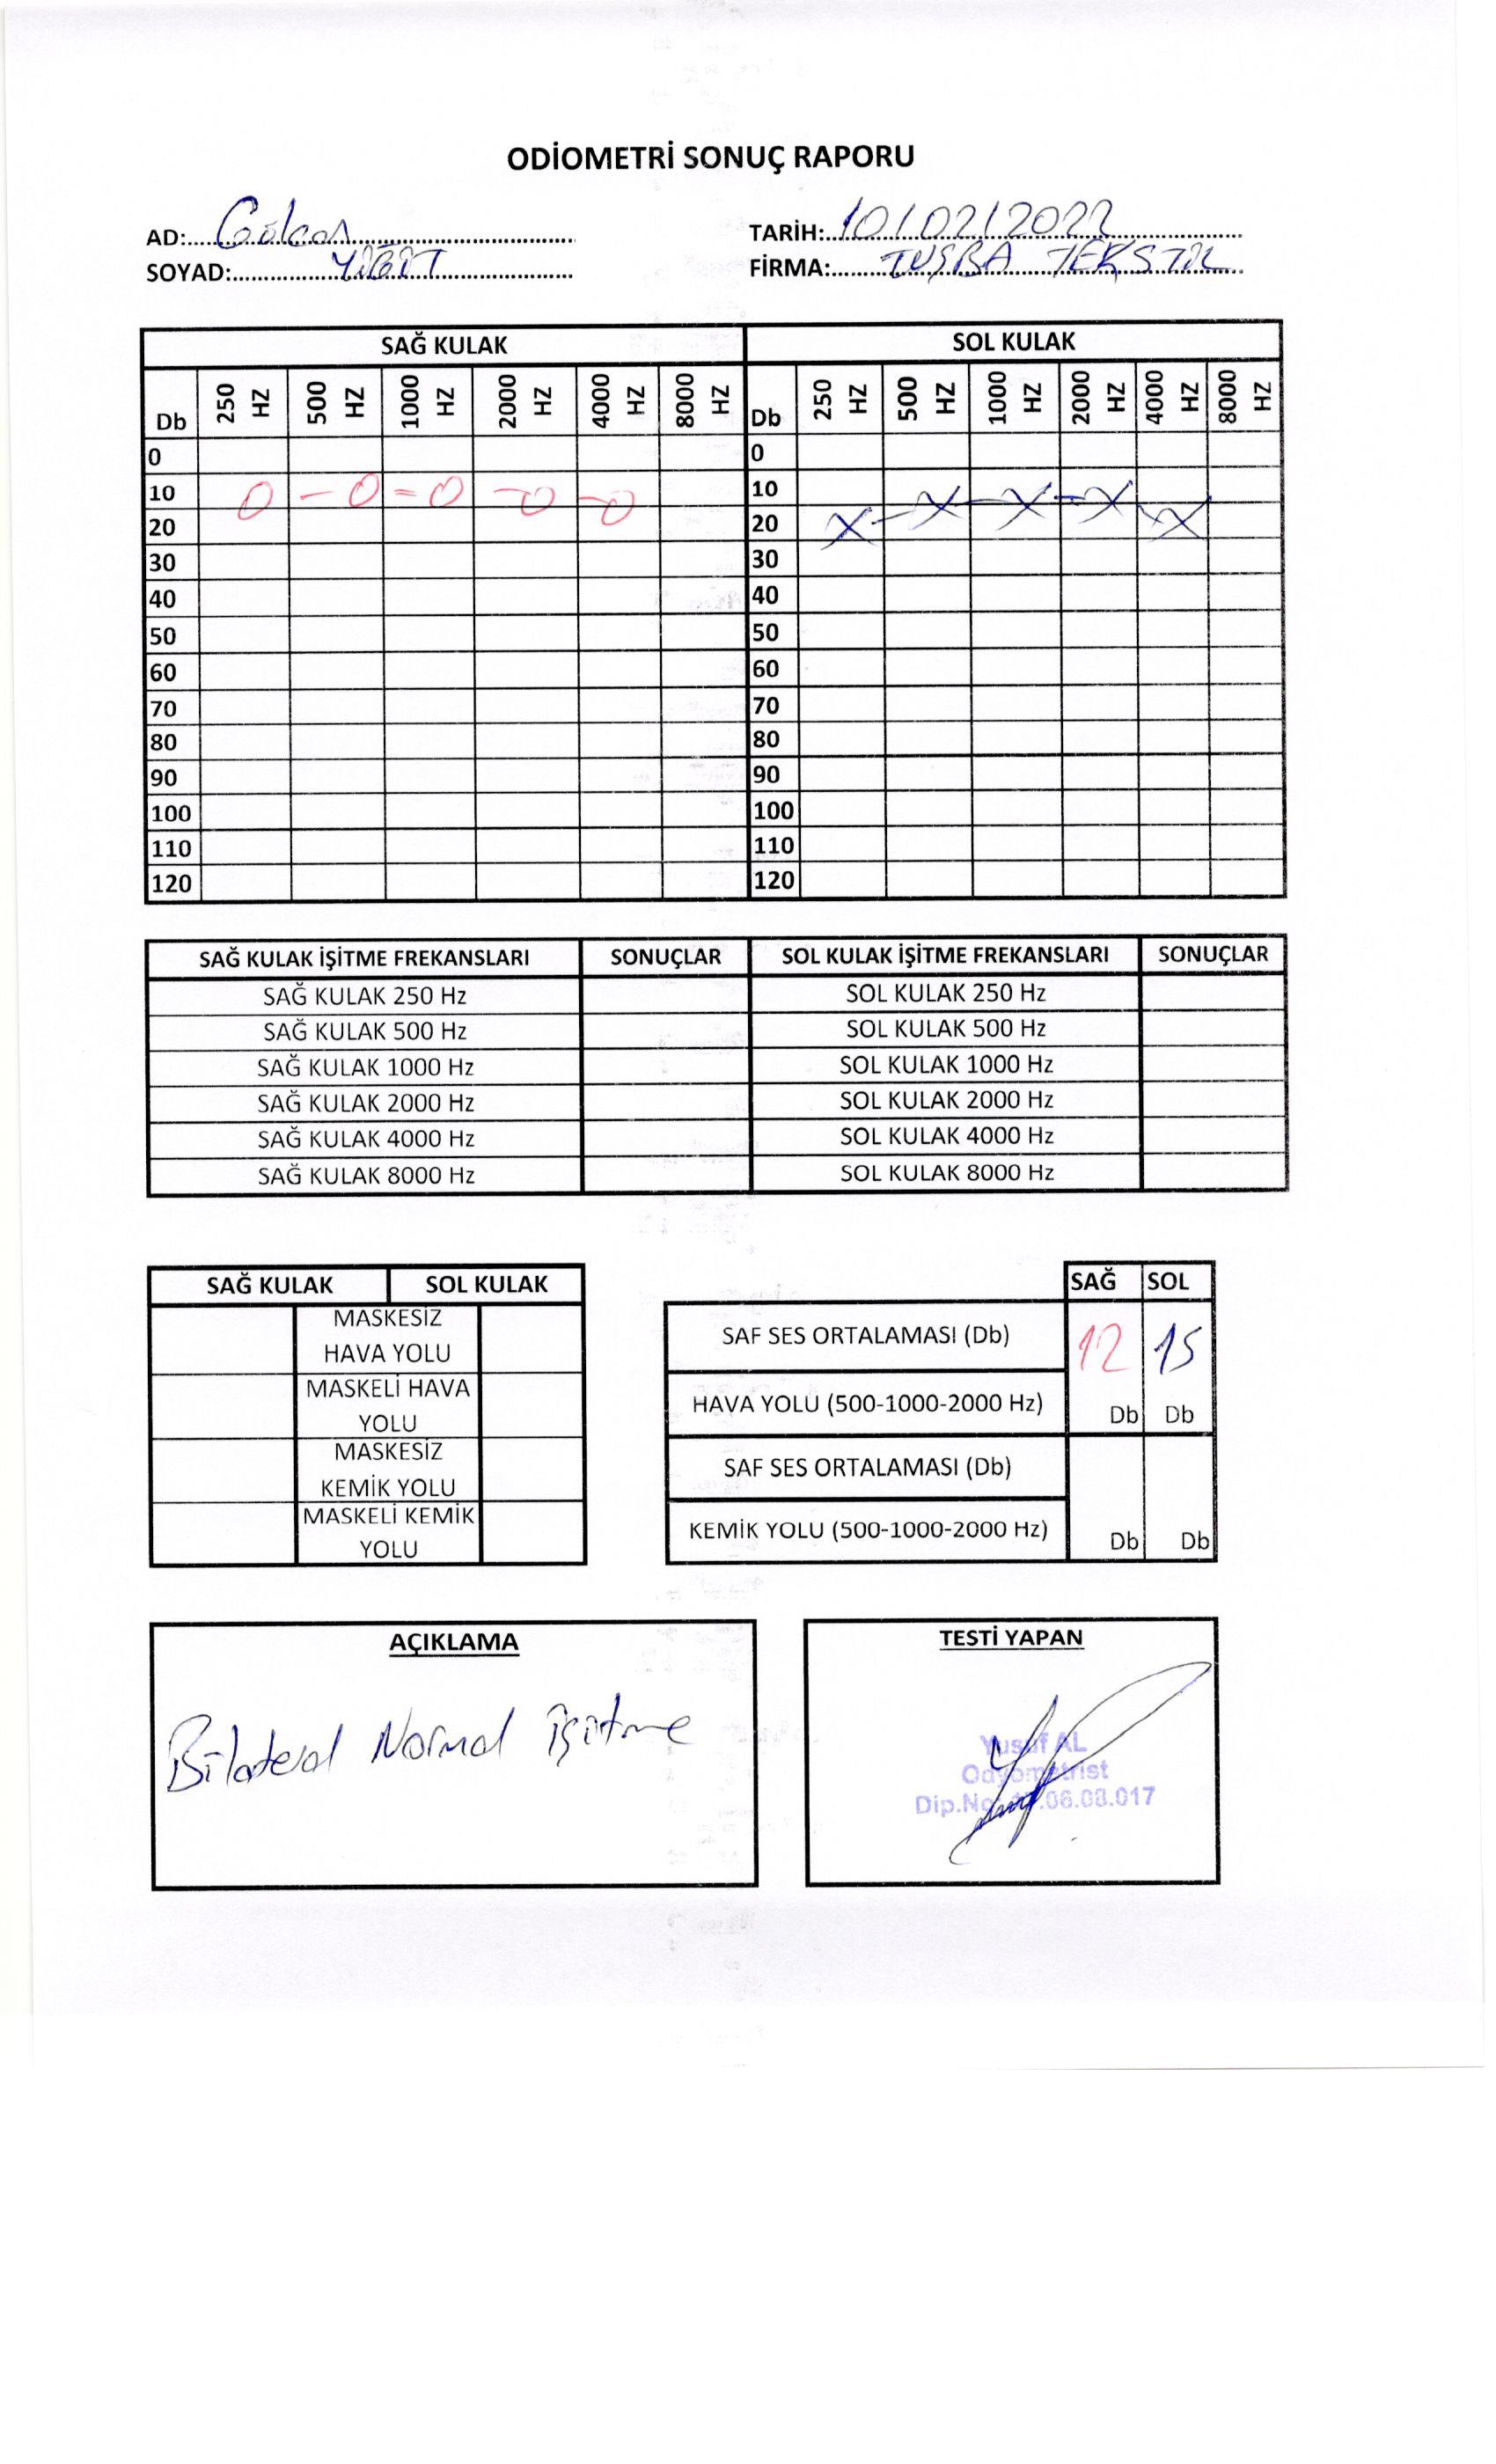 ODİOMETRİ SONUÇ RAPORU
AD: Gülcan TARİH: 10/02/2022
SOYAD: YİĞİT FİRMA: TUŞBA TEKSTİL
SAĞ KULAK SOL KULAK
Db 250 HZ 500 HZ 1000 HZ 2000 HZ 4000 HZ 8000 HZ Db 250 HZ 500 HZ 1000 HZ 2000 HZ 4000 HZ 8000 HZ
0 0
10 O - O = O - O - O 10 X - X - X
20 20 X - X
30 30
40 40
50 50
60 60
70 70
80 80
90 90
100 100
110 110
120 120
SAĞ KULAK İŞİTME FREKANSLARI SONUÇLAR SOL KULAK İŞİTME FREKANSLARI SONUÇLAR
SAĞ KULAK 250 Hz SOL KULAK 250 Hz
SAĞ KULAK 500 Hz SOL KULAK 500 Hz
SAĞ KULAK 1000 Hz SOL KULAK 1000 Hz
SAĞ KULAK 2000 Hz SOL KULAK 2000 Hz
SAĞ KULAK 4000 Hz SOL KULAK 4000 Hz
SAĞ KULAK 8000 Hz SOL KULAK 8000 Hz
SAĞ KULAK SOL KULAK
MASKESİZ
HAVA YOLU
MASKELİ HAVA
YOLU
MASKESİZ
KEMİK YOLU
MASKELİ KEMİK
YOLU
SAĞ SOL
SAF SES ORTALAMASI (Db) 12 15
HAVA YOLU (500-1000-2000 Hz) Db Db
SAF SES ORTALAMASI (Db)
KEMİK YOLU (500-1000-2000 Hz) Db Db
AÇIKLAMA
Bilateral Normal işitme
TESTİ YAPAN
Yusuf AL
Odyometrist
Dip.No: .06.08.017